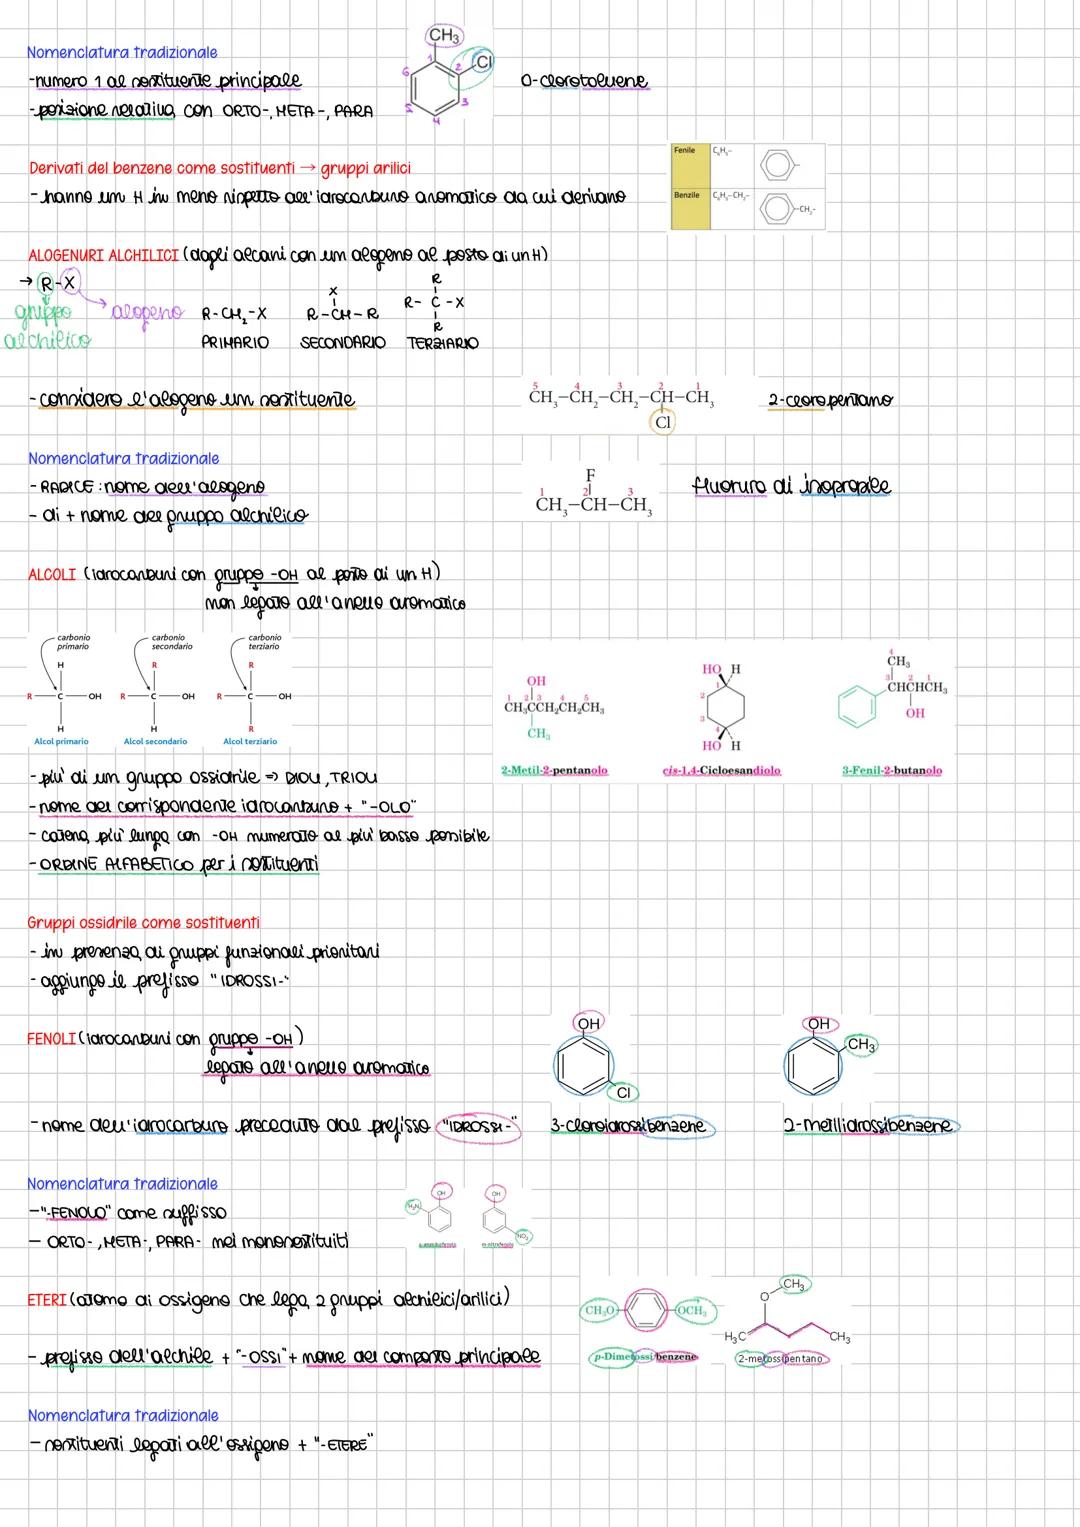 Nomenclatura tradizionale
-numero 1 al sostituente principale
-posizione relativa con ORTO-, META-, PARA
CH₃
Cl
1 2 3 4 5 6
O-clorotoluene
Derivati del benzene come sostituenti → gruppi arilici
- hanno un H in meno rispetto all'idrocarburo aromatico da cui derivano
Fenile C₆H₅-
Benzile C₆H₅-CH₂- -CH₂-
ALOGENURI ALCHILICI (dagli alcani con un alogeno al posto di un H)
→ R-X
gruppo alchilico
alogeno
R-CH₂-X
PRIMARIO
X
R-CH-R
SECONDARIO
R
R- C -X
R
TERZIARIO
- considero l'alogeno un sostituente
5 4 3 2 1
CH₃-CH₂-CH₂-CH-CH₃
Cl
2-cloropentano
Nomenclatura tradizionale
- RADICE : nome dell'alogeno
- di + nome del gruppo alchilico
F
1 2 3
CH₃-CH-CH₃
fluoruro di isopropile
ALCOLI (idrocarburi con gruppo -OH al posto di un H)
non legato all'anello aromatico
carbonio primario
H
R C OH
H
Alcol primario
carbonio secondario
R
R C OH
H
Alcol secondario
carbonio terziario
R
R C OH
R
Alcol terziario
OH
1 2 3 4 5
CH₃CCH₂CH₂CH₃
CH₃
2-Metil-2-pentanolo
HO H
1
2
3
4
HO H
cis-1,4-Cicloesandiolo
4
CH₃
3 2 1
CHCHCH₃
OH
3-Fenil-2-butanolo
- più di un gruppo ossidrile ⇒ DIOLI, TRIOLI
- nome del corrispondente idrocarburo + "-OLO"
- catena più lunga con -OH numerato al più basso possibile
- ORDINE ALFABETICO per i sostituenti
Gruppi ossidrile come sostituenti
- in presenza di gruppi funzionali prioritari
- aggiungo il prefisso "IDROSSI-"
FENOLI (idrocarburi con gruppo -OH)
legato all'anello aromatico
OH
Cl
OH
CH₃
- nome dell'idrocarburo preceduto dal prefisso "IDROSSI-"
3-cloroidrossibenzene
2-metilidrossibenzene
Nomenclatura tradizionale
-"-FENOLO" come suffisso
- ORTO-, META-, PARA- nei monosostituiti
OH
H₂N
o-amminofenolo
OH
NO₂
m-nitrofenolo
ETERI (atomo di ossigeno che lega 2 gruppi alchilici/arilici)
CH₃O OCH₃
p-Dimetossibenzene
CH₃
O
H₃C CH₃
2-metossipentano
- prefisso dell'alchile + "-OSSI" + nome del composto principale
Nomenclatura tradizionale
- sostituenti legati all'ossigeno + "-ETERE"